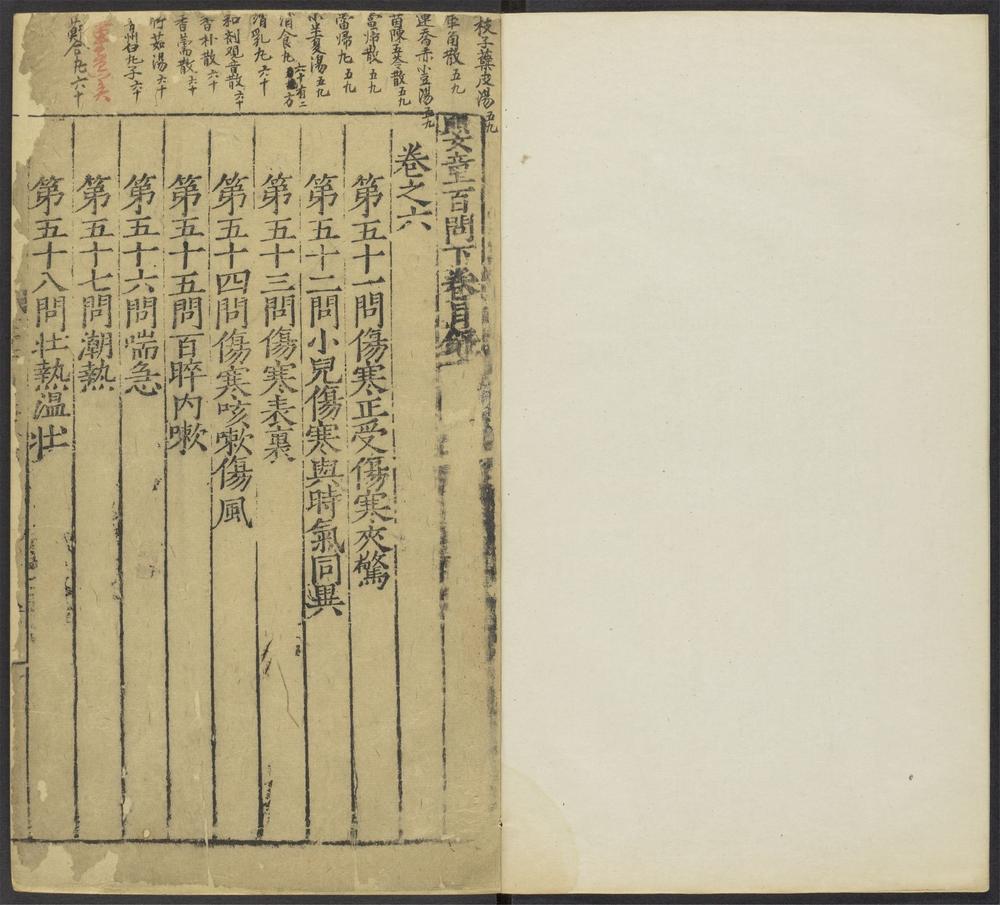 枝子蘗皮湯五九
犀角散五九
連喬赤小豆湯五九
茵陳五苓散五九
當歸散五九
當歸丸五九
小半夏湯五九
消食丸六十有二方
消乳丸六十
和劑观音散六十
香朴散六十
香薷散六十
竹茹湯六十
青州白丸子六十
蘇合丸六十
嬰童百問下卷目錄
卷之六
第五十一問傷寒正受傷寒夾驚
第五十二問小兒傷寒與時氣同異
第五十三問傷寒表裏
第五十四問傷寒咳嗽傷風
第五十五問百晬內嗽
第五十六問喘急
第五十七問潮熱
第五十八問壯熱溫壯